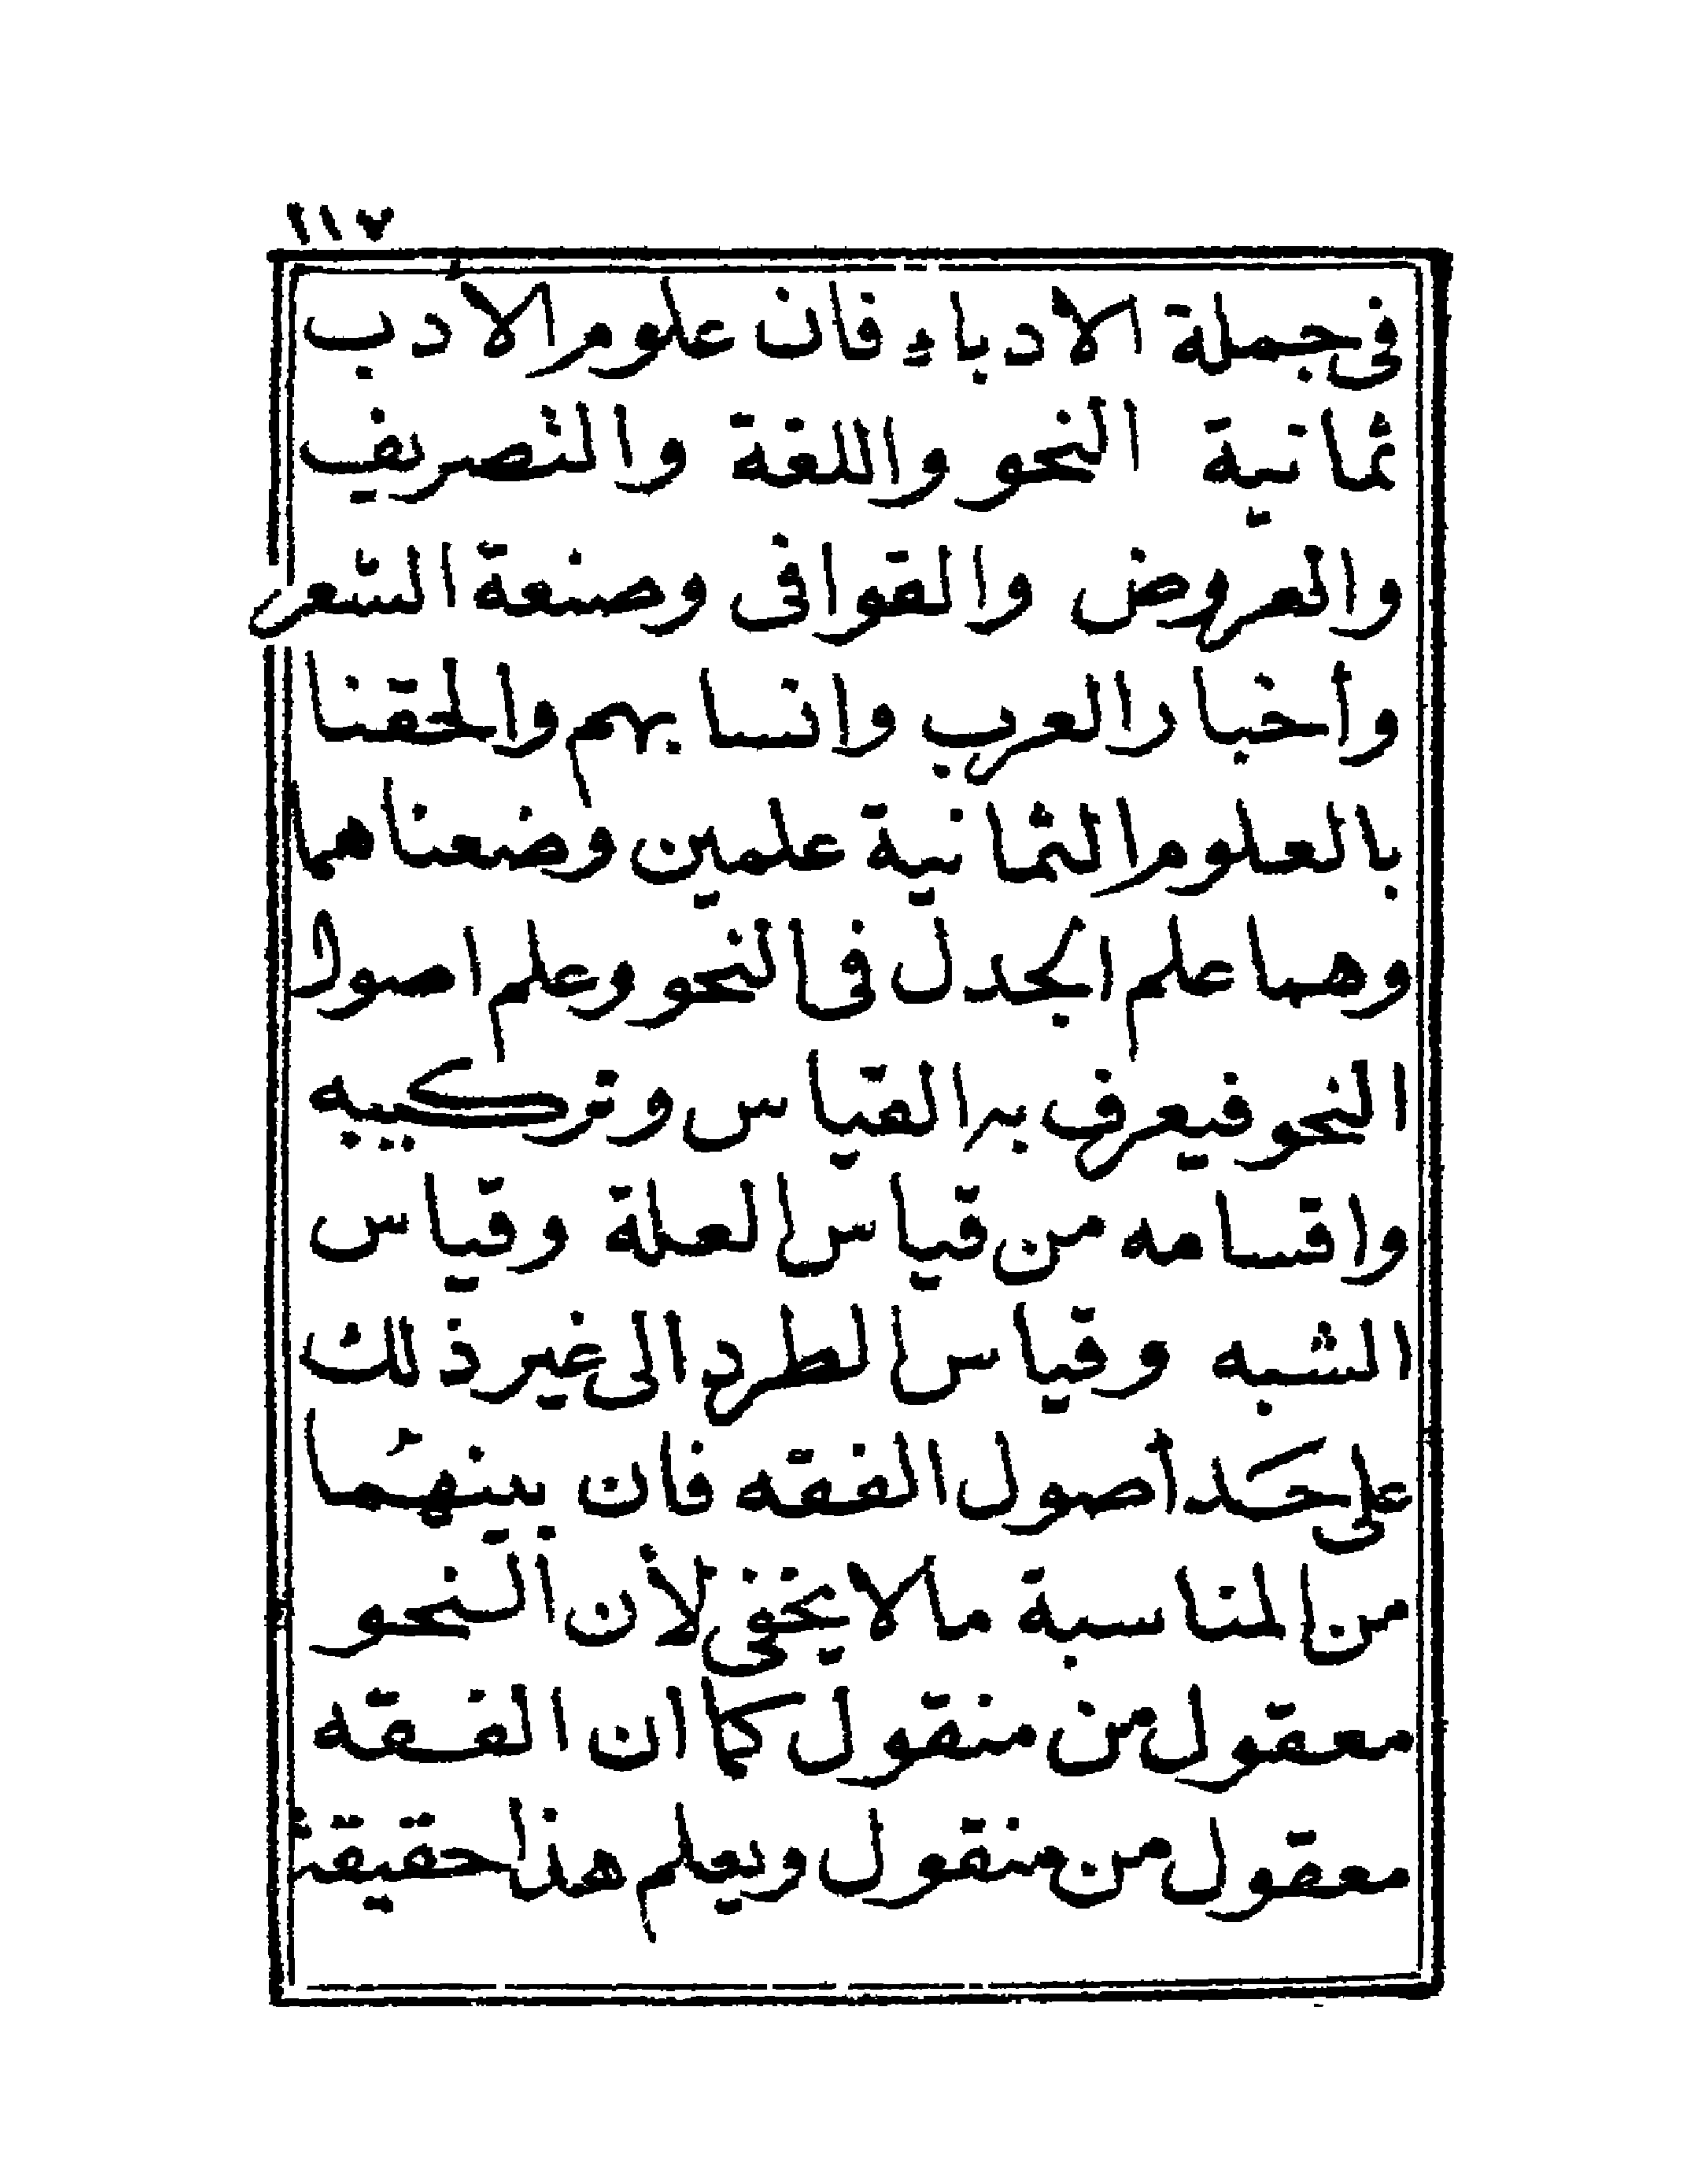 ١١٧
فى جملة الادباء فان علوم الادب
ثمانية النحو واللغة والتصريف
والعروض والقوافى وصنعة الشعر
وأخبار العرب وانسابهم والحقنا
بالعلوم الثمانية علمين وضعناهما
وهما علم الجدل فى النحو وعلم اصول
النحو فيعرف به القياس وتركيبه
واقسامه من قياس العلة وقياس
الشبه وقياس الطرد الى غير ذلك
على حَد أصول الفقه فان بينهُما
من المناسبة ما لا يخفى لأن النحو
معقول من منقول كما ان الفقه
معقول من منقول ويعلم هذا حقيقة